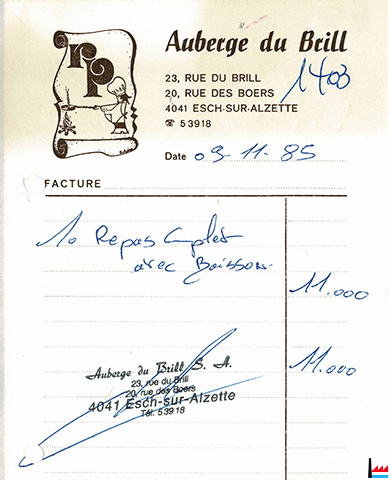 rp
Auberge du Brill
23, RUE DU BRILL
1403
20, RUE DES BOERS
4041 ESCH-SUR-ALZETTE
☎ 53918
Date 09-11-85
FACTURE
10 Repas Complet
avec Boisson
11.000
11.000
Auberge du Brill S. A.
23, rue du Brill
20, rue des Boers
4041 Esch-sur-Alzette
Tél. 53918